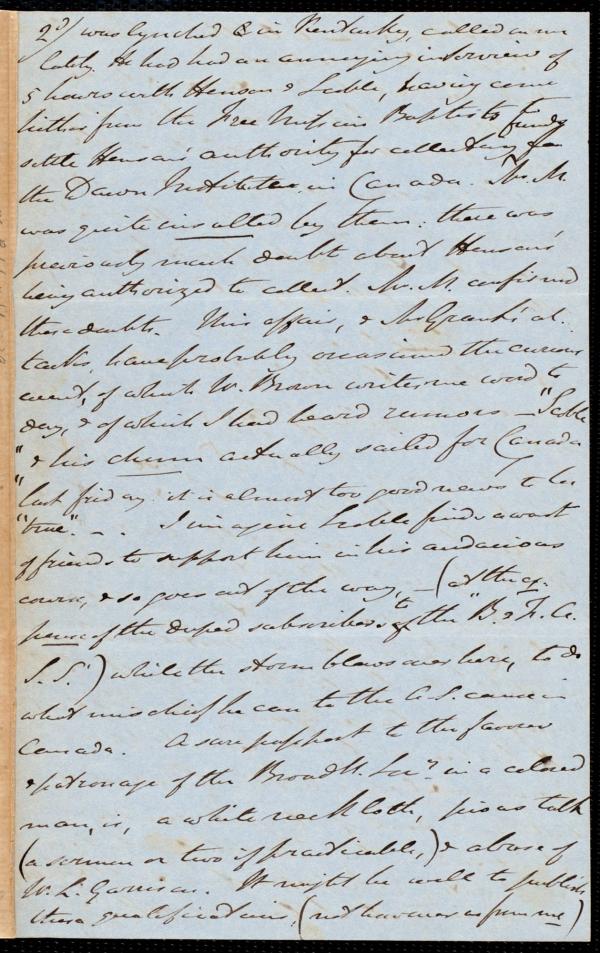 2d/ was lynched & in Kentucky, called on me
lately. He had had an annoying interview of
5 hours with Henson & Scoble, having come
hither from the Free Mission Baptists to
settle Henson's authority for collecting for
the Dawn Institute in Canada. Mr. M.
was quite insulted by them: there was
previously much doubt about Henson's
being authorized to collect. Mr. M. confirmed
these doubts. This affair, & Mr Grant's at-
tacks, have probably occasioned the curious
event, of which W. Brown writes me word to
day, & of which I had heard rumors — "Scoble
"& his chum actually sailed for Canada
"last friday: it is almost too good news to be
"true". — . I imagine Scoble finds a want
of friends to support him in his audacious
course, & so goes out of the way, — (at the ex-
pense of the duped subscribers to the "B. & F. A.
S. S.") while the storm blows over here, to do
what mischief he can to the A. S. cause in
Canada. A sure passport to the favour
& patronage of the Broad St. Socy. in a colored
man, is, a white neck cloth, pious talk
(a sermon or two if practicable,) & abuse of
W. L. Garrison. It might be well to publish
these qualifications, (not however as from me)